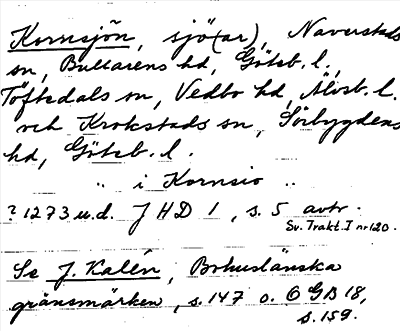 Kornsjön, sjö(ar), Naverstads
sn, Bullarens hd, Göteb. l.,
Töftedals sn, Vedbo hd, Älvsb. l.
och Krokstads sn, Sörbygdens
hd, Göteb. l.
" i Kornsio "
? 1273 u.d. JHD 1, s. 5 avtr.
Sv. Trakt. I nr 120.
Se J. Kalén, Bohuslänska
gränsmärken, s. 147 o. OGB 18,
s. 159.